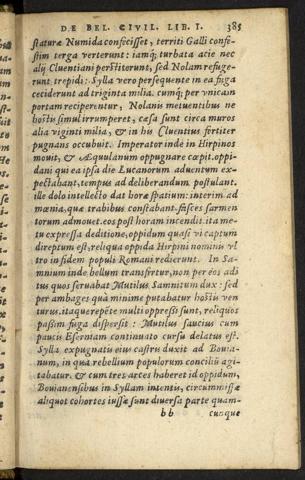 DE BEL. CIVIL. LIB. I. 385
staturæ Numida confecisset, territi Galli confe-
stim terga verterunt: iamq; turbata acie nec
alij Cluentiani perstiterunt, sed Nolam refuge-
runt trepidi: Sylla vero persequente in ea fuga
ceciderunt ad triginta milia. cumq; per vnicam
portam reciperentur, Nolanis metuentibus ne
hostis simul irrumperet, cæsa sunt circa muros
alia viginti milia, & in his Cluentius fortiter
pugnans occubuit. Imperator inde in Hirpinos
mouit, & Aequulanum oppugnare cœpit. oppi-
dani qui ea ipsa die Lucanorum aduentum ex-
pectabant, tempus ad deliberandum postulant.
ille dolo intellecto dat horæ spatium: interim ad
mœnia, quæ trabibus constabant, fasces sarmen
torum admouet. eos post horam incendit. ita me-
tu expressa deditione, oppidum quasi vi captum
direptum est, reliqua oppida Hirpini nominis vl
tro in fidem populi Romani redierunt. In Sa-
mnium inde bellum transfertur, non per eos adi
tus quos seruabat Mutilus Samnitum dux: sed
per ambages qua minime putabatur hostis ven
turus. itaque repēte multi oppressi sunt, reliquos
passim fuga dispersit: Mutilus saucius cum
paucis Eserniam continuato cursu delatus est.
Sylla expugnatis eius castris duxit ad Bouia-
num, in qua rebellium populorum conciliū agi-
tabatur. & cum tres arces haberet id oppidum,
Bouianensibus in Syllam intentis, circummissæ
aliquot cohortes iussæ sunt diuersa parte quam-
bb cunque